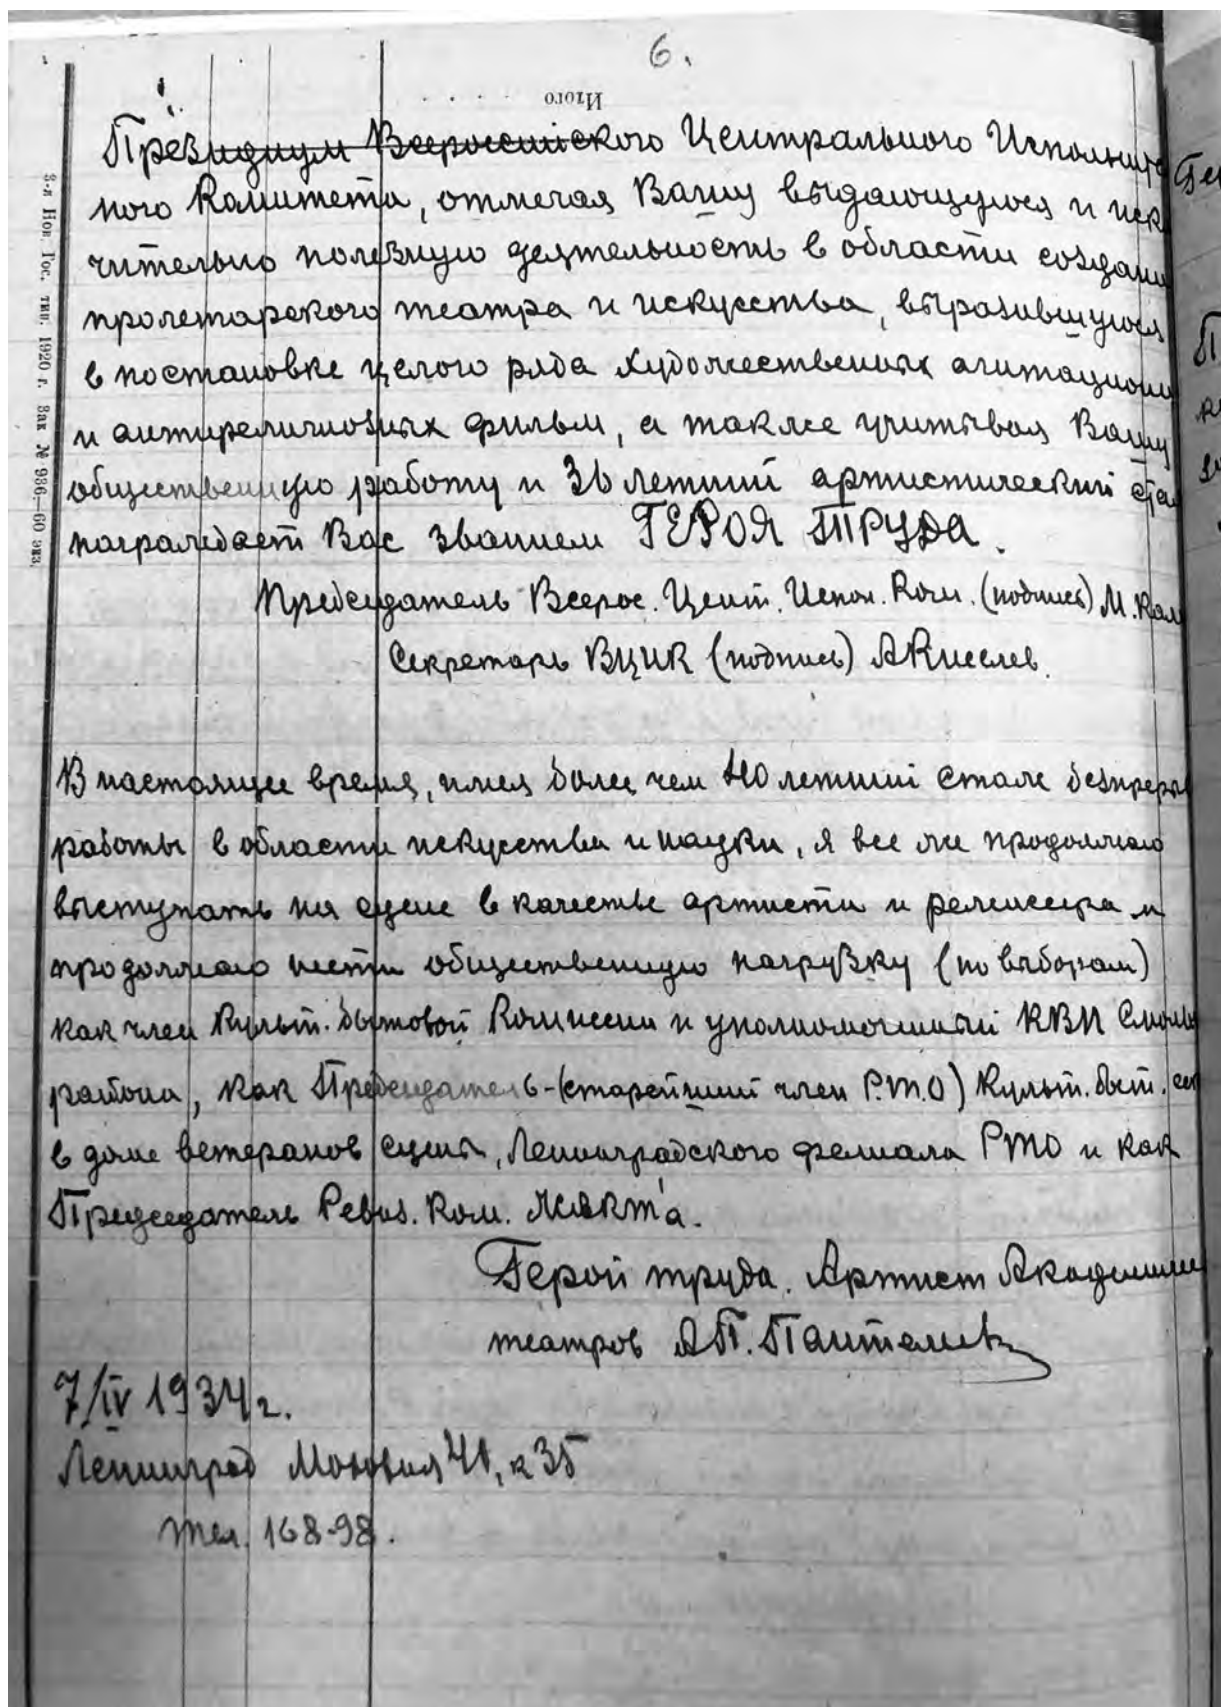 6.
Итого . . . . .
Президиум Всероссийского Центрального Исполните
ного Комитета, отмечая Вашу выдающуюся и искл
чительно полезную деятельность в области создани
пролетарского театра и искусства, выразившуюся
в постановке целого ряда художественных агитационн
и антирелигиозных фильм, а также учитывая Вашу
общественную работу и 36 летний артистический стаж
награждает Вас званием ГЕРОЯ ТРУДА.
Председатель Всерос. Цент. Испол. Ком. (подпись) М. Кал
Секретарь ВЦИК (подпись) А Киселев.
В настоящее время, имея более чем 40 летний стаж безпреры
работы в области искусства и науки, я все же продолжаю
выступать на сцене в качестве артиста и режиссера и
продолжаю нести общественную нагрузку (по выборам)
как член Культ. бытовой Комиссии и уполномоченный КВП Смоль
района, как Председатель-(старейший член Р.Т.О) Культ. быт. сек
в доме ветеранов сцены, Ленинградского фелиала РТО и как
Председатель Ревиз. Ком. Жакт'а.
Герой труда. Артист Академиче
театров А П. Пантелеев
7/IV 1934 г.
Ленинград Моховая 41, к 35
тел. 168-98.
3-я Нов. Гос. тип. 1920 г. Зак № 936.—60 экз.